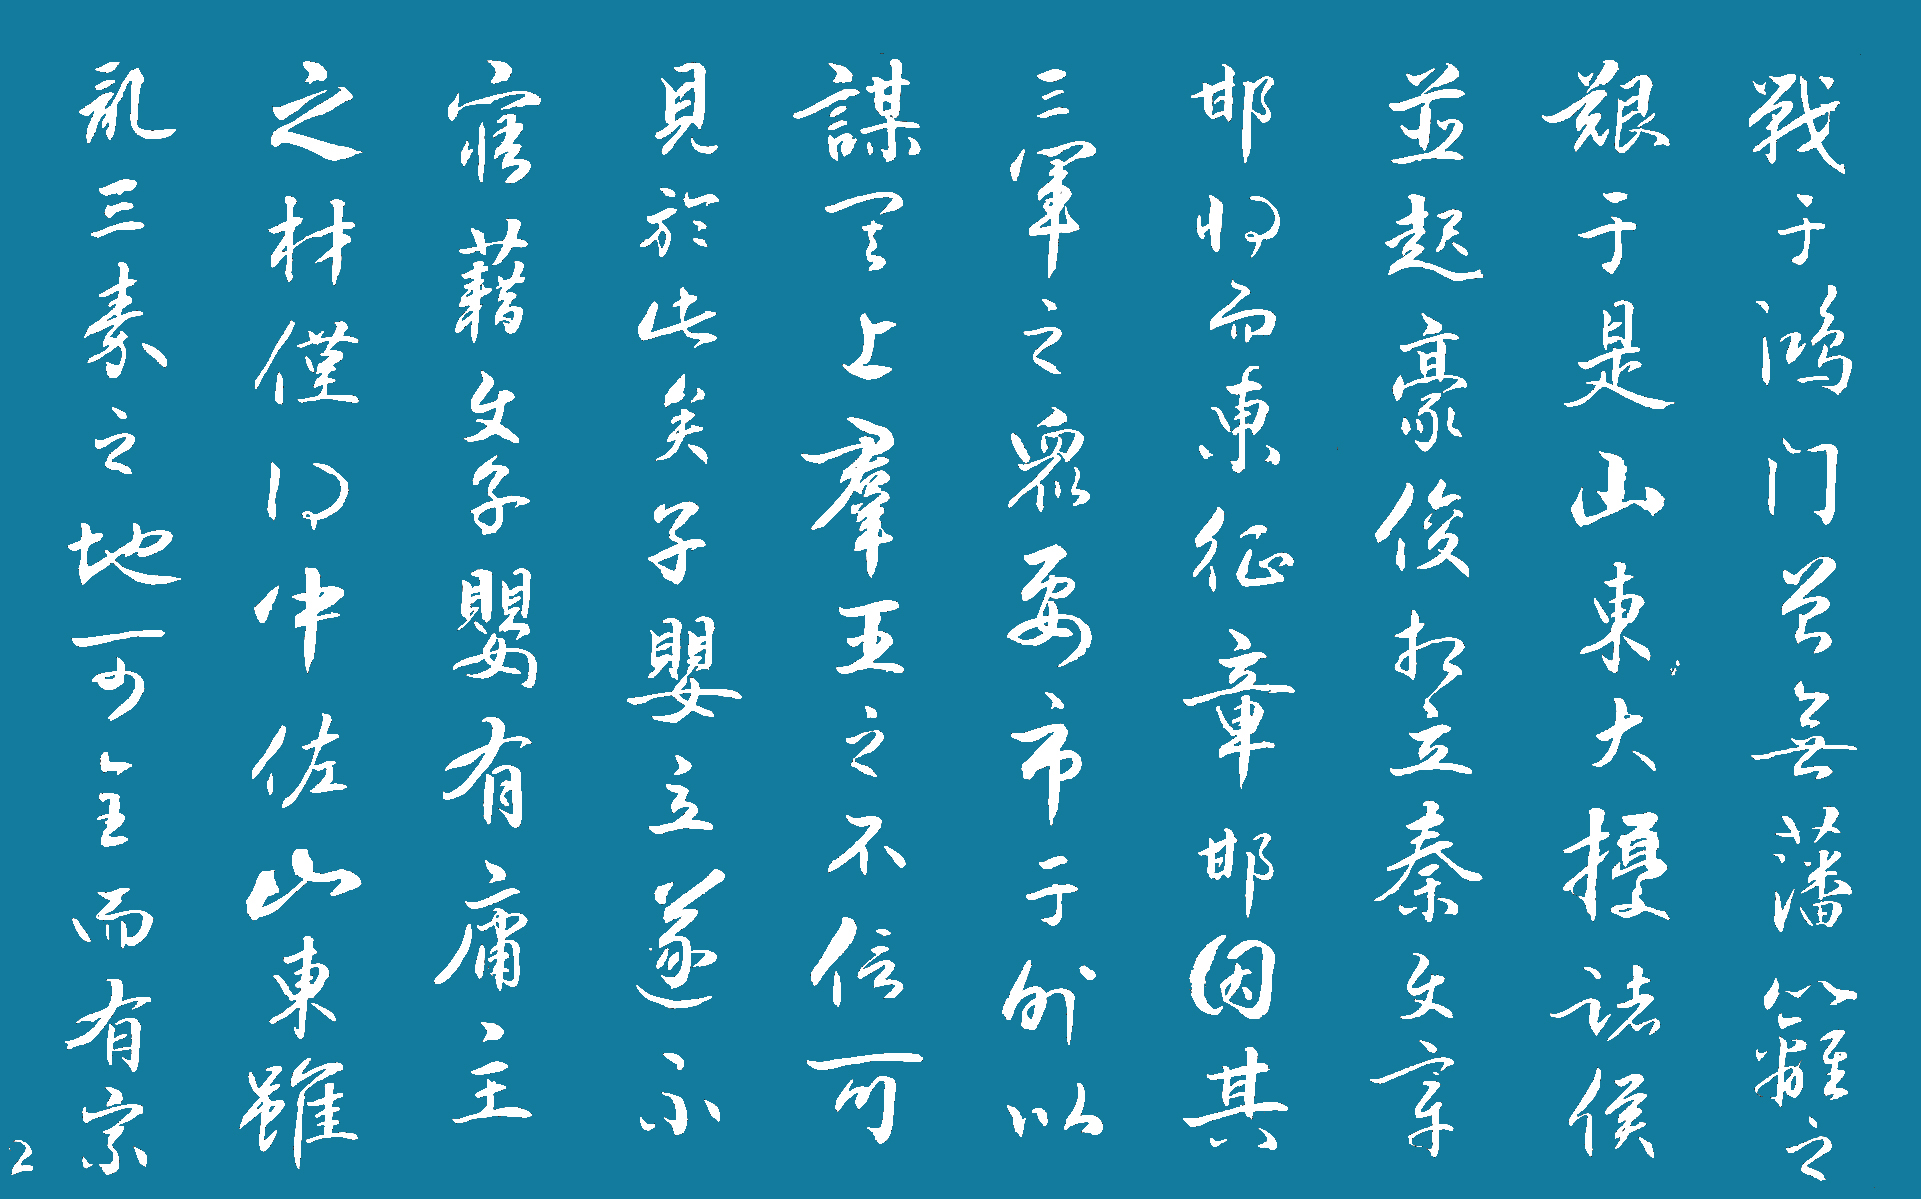 戰于鴻门曾無藩籬之
艱于是山東大擾諸侯
並起豪俊相立秦使章
邯将而東征章邯因其
三軍之眾要市于外以
謀其上羣臣之不信可
見於此矣子嬰立遂不
寤藉使子嬰有庸主
之材僅得中佐山東雖
亂三秦之地可全而有宗
2